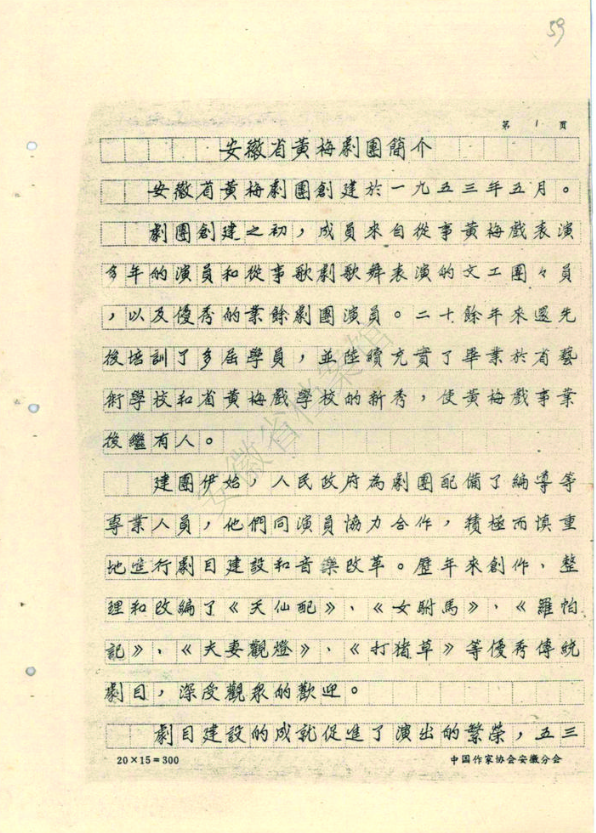 39
第1頁
安徽省黃梅劇團簡介
安徽省黃梅劇團創建於一九五三年五月。
劇團創建之初，成員來自從事黃梅戲表演
多年的演員和從事歌劇歌舞表演的文工團々員
，以及優秀的業餘劇團演員。二十餘年來還先
後培訓了多屆學員，並陸續充實了畢業於省藝
術學校和省黃梅戲學校的新秀，使黃梅戲事業
後繼有人。
建團伊始，人民政府為劇團配備了編導等
專業人員，他們同演員協力合作，積極而慎重
地進行劇目建設和音樂改革。歷年來創作，整
理和改編了《天仙配》、《女駙馬》、《羅帕
記》、《夫妻觀燈》、《打猪草》等優秀傳統
劇目，深受觀眾的歡迎。
劇目建設的成就促進了演出的繁榮，五三
20×15=300
中国作家协会安徽分会
安徽省档案馆